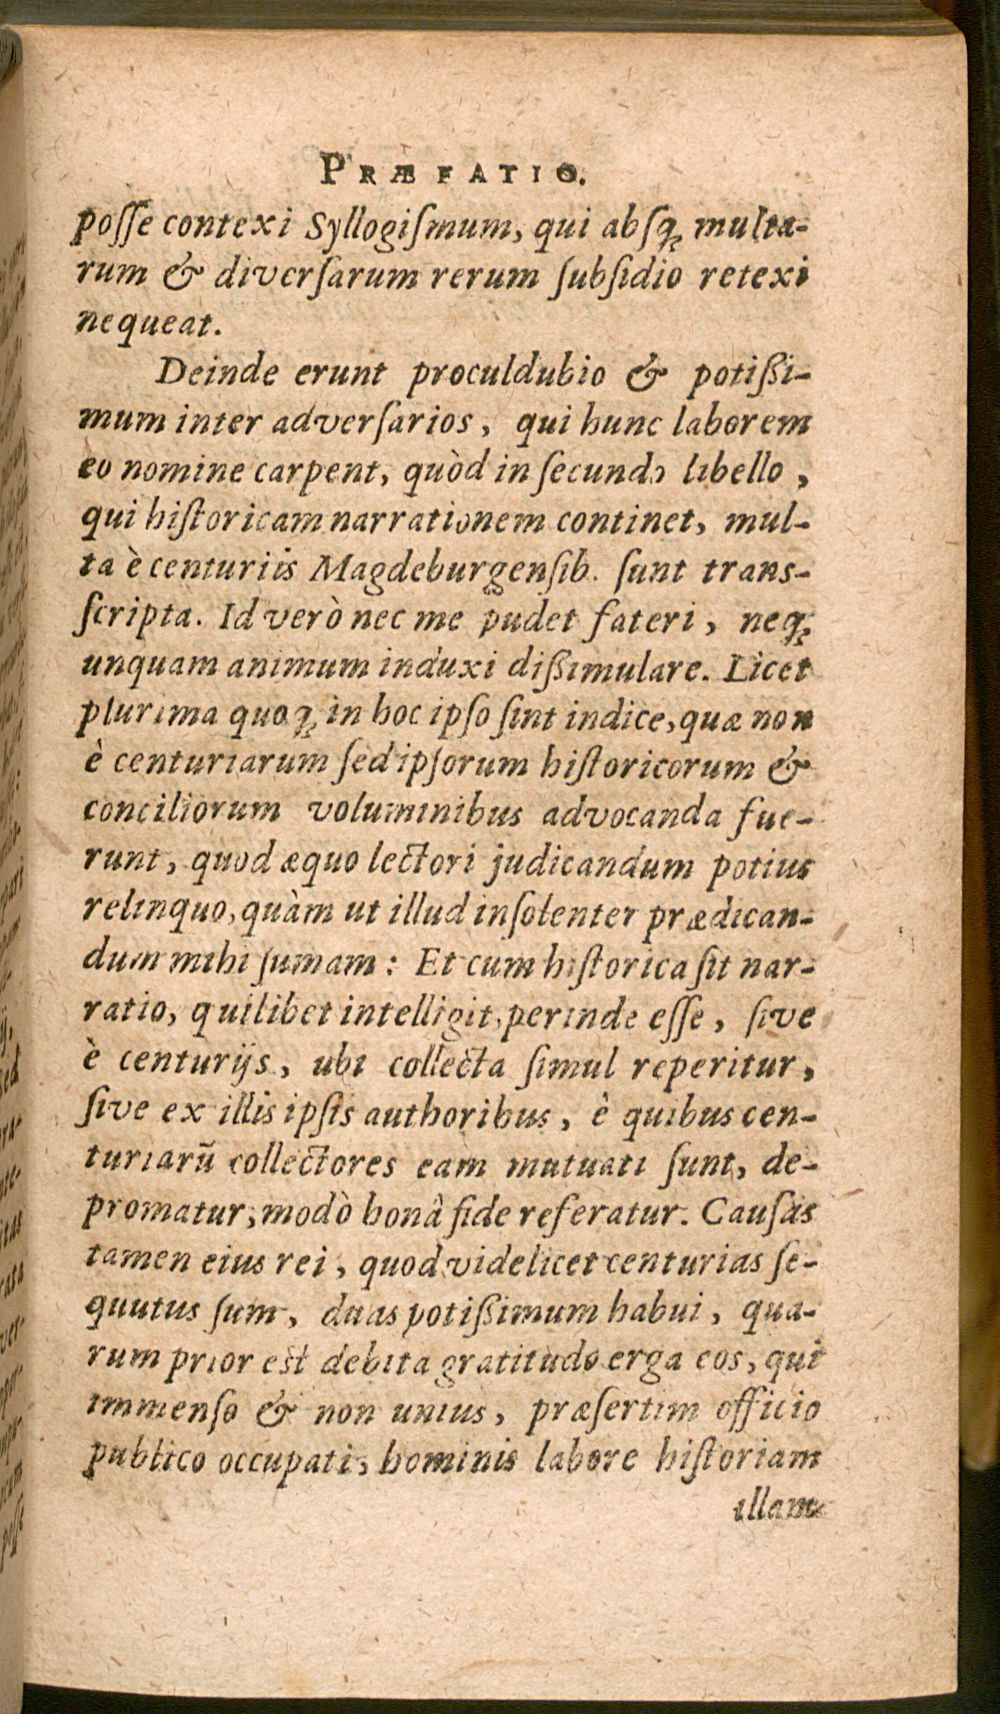 PRÆFATIO.
poſſe contexi Syllogiſmum, qui abſq; multa-
rum & diverſarum rerum ſubſidio retexi
nequeat.
Deinde erunt proculdubio & potiſſi-
mum inter adverſarios, qui hunc laborem
eo nomine carpent, quòd in ſecundo libello,
qui hiſtoricam narrationem continet, mul-
ta è centuriis Magdeburgenſib. ſunt trans-
ſcripta. Id verò nec me pudet fateri, neq;
unquam animum induxi diſſimulare. Licet
plurima quoq; in hoc ipſo ſint indice, quæ non
è centuriarum ſed ipſorum hiſtoricorum &
conciliorum voluminibus advocanda fue-
runt, quod æquo lectori judicandum potius
relinquo, quàm ut illud inſolenter prædican-
dum mihi ſumam: Et cum hiſtorica ſit nar-
ratio, quilibet intelligit, perinde eſſe, ſive
è centurijs, ubi collecta ſimul reperitur,
ſive ex illis ipſis authoribus, è quibus cen-
turiarū collectores eam mutuati ſunt, de-
promatur, modò bonâ fide referatur. Cauſas
tamen eius rei, quod videlicet centurias ſe-
quutus ſum, duas potiſſimum habui, qua-
rum prior eſt debita gratitudo erga eos, qui
immenſo & non unius, præſertim officio
publico occupati, hominis labore hiſtoriam
illam